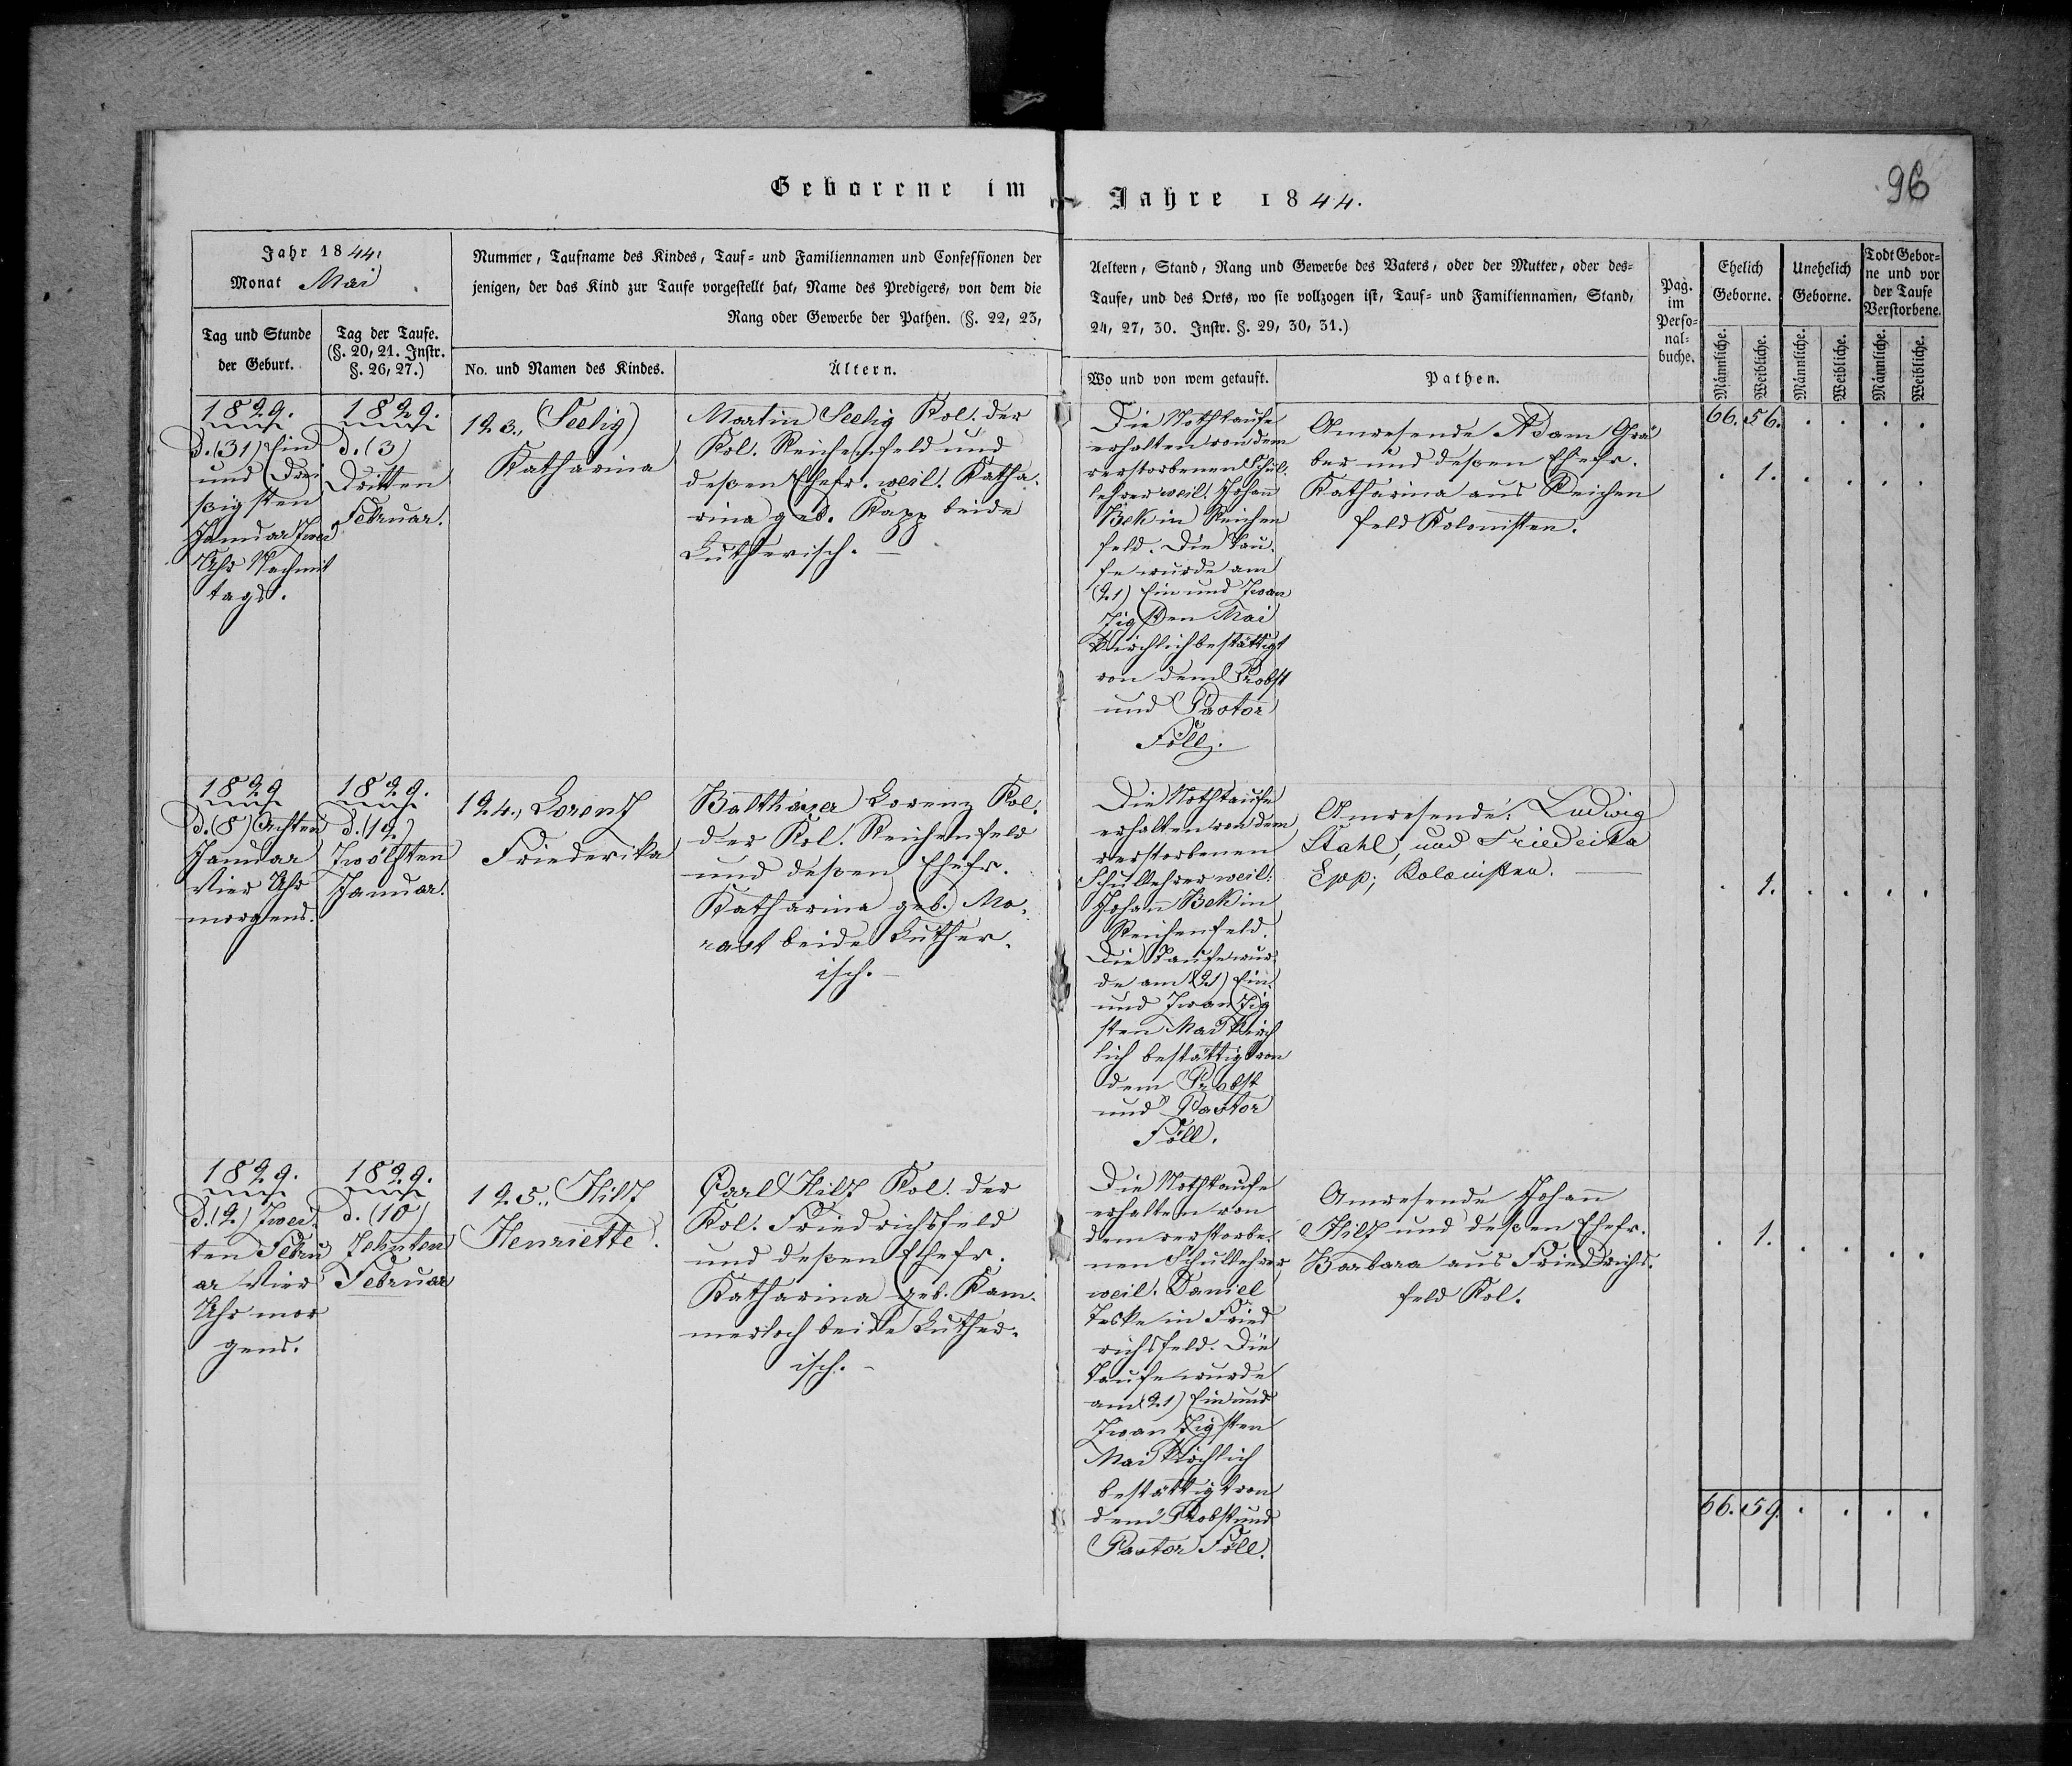 Geborene im Jahre 1844.
96
Jahr 1844.
Monat Mai
Nummer, Taufname des Kindes, Tauf- und Familiennamen und Confessionen der
jenigen, der das Kind zur Taufe vorgestellt hat, Name des Predigers, von dem die
Rang oder Gewerbe der Pathen. (§. 22, 23,
Aeltern, Stand, Rang und Gewerbe des Vaters, oder der Mutter, oder des-
Taufe, und des Orts, wo sie vollzogen ist, Tauf- und Familiennamen, Stand,
24, 27, 30. Instr. §. 29, 30, 31.)
Pag.
im
Perso-
nal-
buche.
Ehelich
Geborne.
Unehelich
Geborne.
Todt Gebor-
ne und vor
der Taufe
Verstorbene.
Tag und Stunde
der Geburt.
Tag der Taufe.
(§. 20, 21. Instr.
§. 26, 27.)
No. und Namen des Kindes.
Ältern.
Wo und von wem getauft.
Pathen.
Männliche.
Weibliche.
Männliche.
Weibliche.
Männliche.
Weibliche.
1829.
d. (31) Ein
und Drei
ßigsten
Januar Zwei
Uhr Nachmit
tags.
1829.
d. (3)
Dritten
Februar.
123., Seelig
Katharina
Martin Seelig Kol. der
Kol. Reichenfeld und
deßen Ehefr. weil. Katha-
rina geb. Kapp beide
Lutherisch. —
Die Nothtaufe
erhalten von dem
verstorbenen Schul-
lehrer weil. Johann
Bek in Reichen
feld. Die Tau-
fe wurde am
(21) Ein und Zwan
zigsten Mai
Kirchlich bestättigt
von dem Probst
und Pastor
Föll.
Anwesende Adam Grä
ber und deßen Ehefr.
Katharina aus Reichen
feld Kolonisten.
66. 56. . . . .
. 1. . . . .
1829
d. (8) Achten
Januar
Vier Uhr
morgens.
1829.
d. (12)
Zwölften
Januar.
124., Lorenz
Friederika
Balthaser Lorenz Kol.
der Kol. Reichenfeld
und deßen Ehefr.
Katharina geb. Mo-
rast beide Luther-
isch. —
Die Nothtaufe
erhalten von dem
verstorbenen
Schullehrer weil.
Johann Bek in
Reichenfeld.
Die Taufe wur-
de am (21) Ein
und Zwanzig
sten Mai Kirch
lich bestättigt von
dem Probst
und Pastor
Föll.
Anwesende: Ludwig
Stahl, und Friedeika
Epp; Kolonisten. —
. 1. . . . .
1829.
d. (2) Zwei-
ten Febru
ar Vier
Uhr mor
gens.
1829.
d. (10)
Zehnten
Februar
125., Hilz
Henriette.
Carl Hilz Kol. der
Kol. Friedrichsfeld
und deßen Ehefr.
Katharina geb. Kam-
merloch beide Luther-
isch. -
Die Nothtaufe
erhalten von
dem verstorbe-
nen Schullehrer
weil. Daniel
Teske in Fried
richsfeld. Die
Taufe wurde
am (21) Ein und
Zwanzigsten
Mai Kirchlich
bestättigt von
dem Probst und
Pastor Föll.
Anwesende Johann
Hilz und deßen Ehefr.
Barbara aus Friedrichs-
feld Kol.
. 1. . . . .
66. 59. . . . .